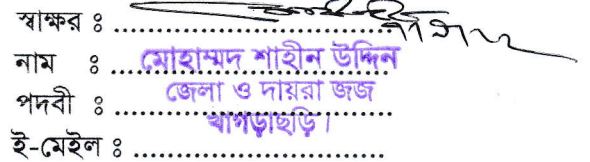 স্বাক্ষর ঃ
নাম ঃ মোহাম্মদ শাহীন উদ্দিন
পদবী ঃ জেলা ও দায়রা জজ
খাগড়াছড়ি।
ই-মেইল ঃ